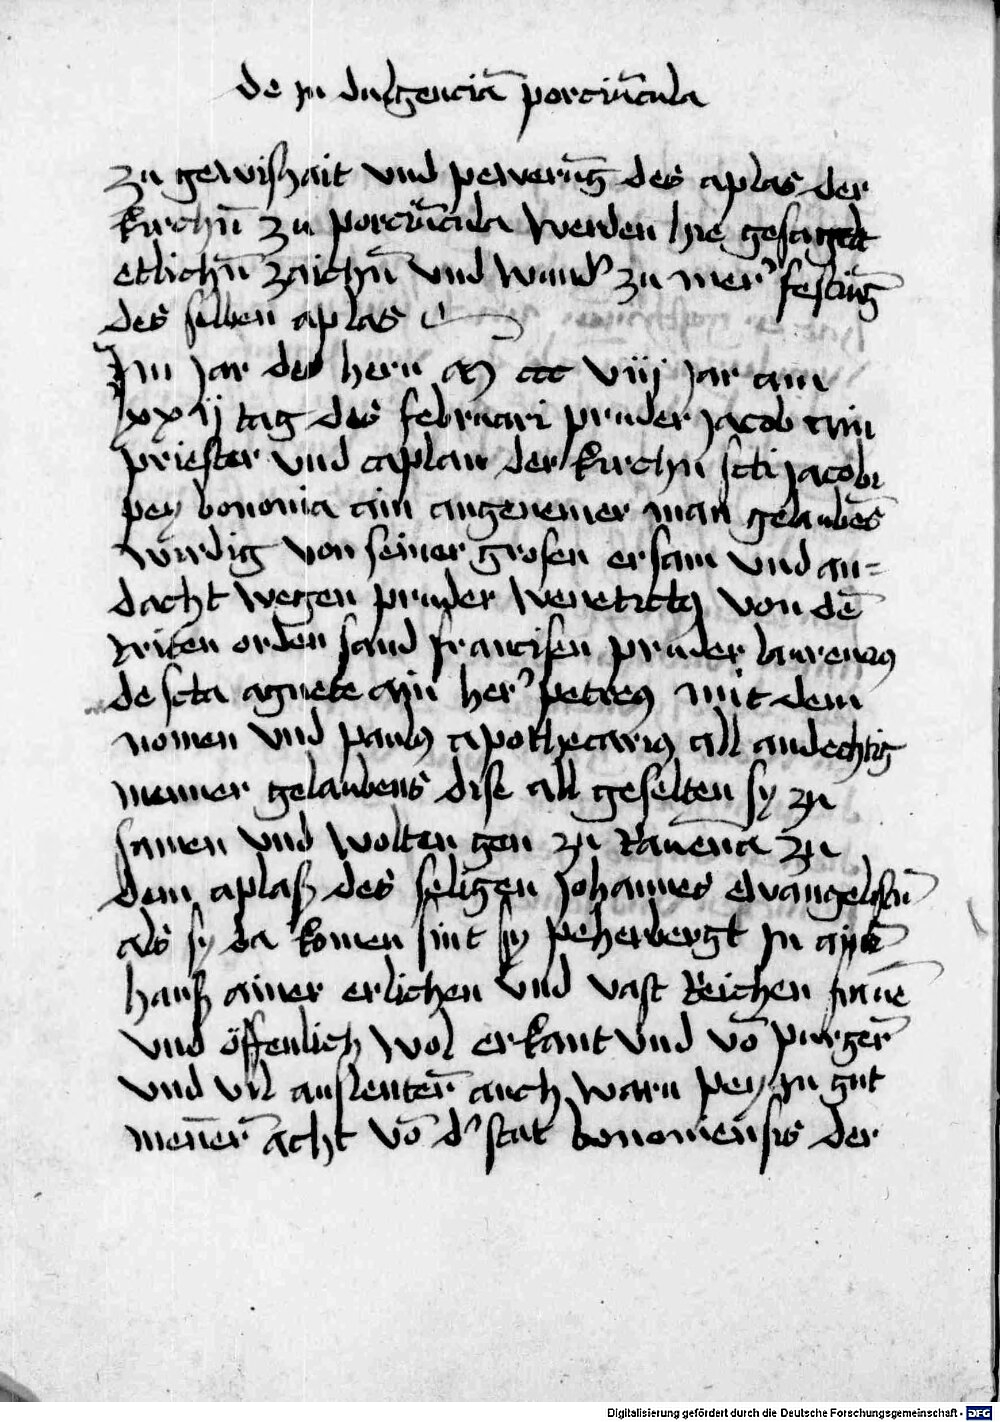 de in dulgenciā porciūcula
zu gewishait und pewerūg des aplas der
kirchn̄ zu porciūcula werden hie gesagtt
etlichn̄ zaichn̄ und wund' zu mer' festiūg
des selben aplas
Im jar des hern M ccc viij jar am
xxij tag des februari pruder jacob ain
priester und caplan der kirchn̄ scti jacobi
pey bononia ain angenemer man gelaubēs
wirdig von seiner grosen ersam und an=
dacht wegen pruder venetictꝰ von dē
triten orden sand francisen pruder laurenciꝰ
de scta agnete ain her' petreꝰ mit dem
nomen und paulꝰ apothecariꝰ all andechtig
menner gelaubens dise all geselten sy zu
samen und wolten gen zu Ravenā zu
dem aplaß des seligen johannes ewangelistn̄
als sy da komen sint sy peherbergt in aynē
hauß ainer erlichen und vast Reichen frauē
und öffenlich wol erkant und vō purgern̄
und vil auslentern̄ auch warn pey in gut
men̄er acht vō d' stat bononiensis der
Digitalisierung gefördert durch die Deutsche Forschungsgemeinschaft - DFG